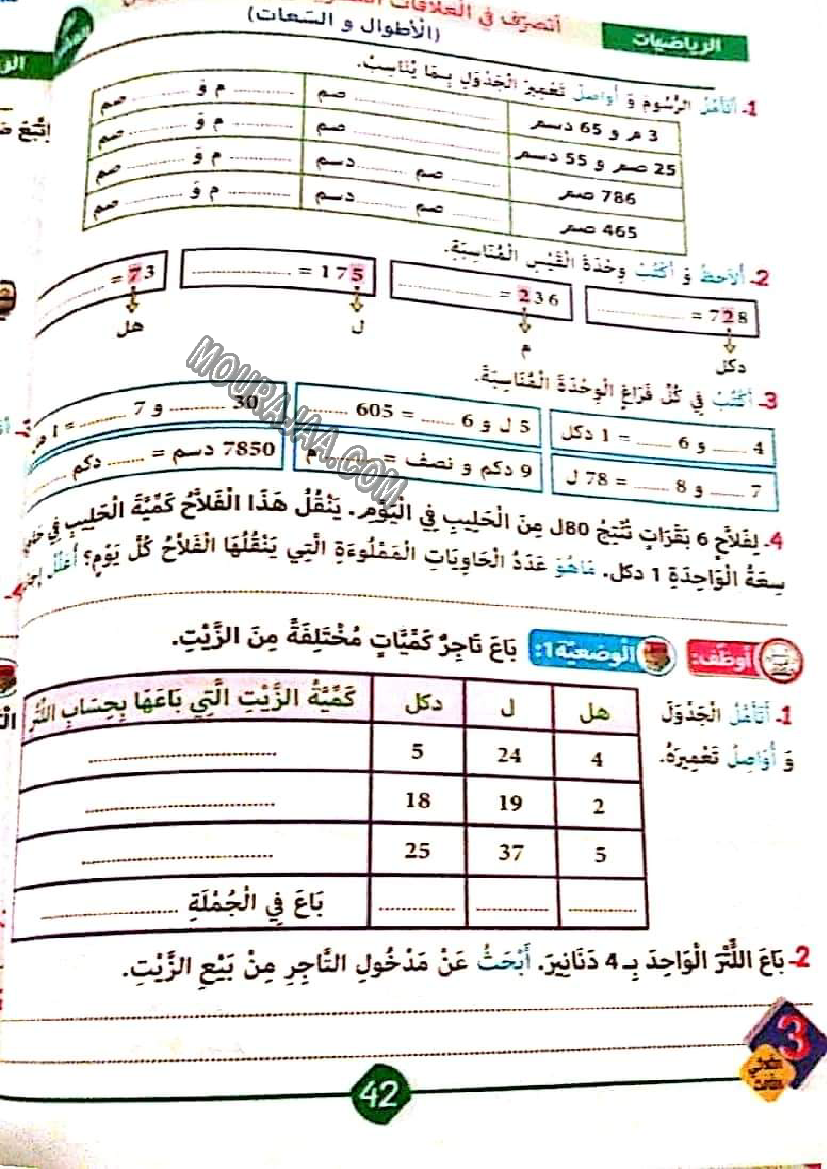 الرياضيات
أتصرّف في العلاقات
(الأطوال و السّعات)
1- أتأمّل الرّسوم وَ أُواصِلُ تَعْمِيرَ الْجَدْوَلِ بِمَا يُنَاسِبُ.
3 م و 65 دسم ............ صم ............ م وَ ............ صم
25 صم و 55 دسم ............ صم ............ م وَ ............ صم
786 صم ............ صم ............ دسم ............ م وَ ............ صم
465 صم ............ صم ............ دسم ............ م وَ ............ صم
2- أُلَاحِظُ وَ أَكْتُبُ وِحْدَةَ الْقَيْسِ الْمُنَاسِبَةِ.
728 = ............ 236 = ............ 175 = ............ 73 = ............
دكل م ل هل
3- أَكْتُبُ فِي كُلِّ فَرَاغٍ الْوِحْدَةَ الْمُنَاسِبَةَ.
4 ...... و 6 ...... = 1 دكل 5 ل و 6 ...... = 605 ...... 30 ...... و 7 ...... = 1
7 ...... و 8 ...... = 78 ل 9 دكم و نصف = ...... م 7850 دسم = ...... دكم ......
4- لِفَلَّاحٍ 6 بَقَرَاتٍ تُنْتِجُ 80ل مِنَ الْحَلِيبِ فِي الْيَوْمِ. يَنْقُلُ هَذَا الْفَلَّاحُ كَمِّيَّةَ الْحَلِيبِ فِي
سِعَةُ الْوَاحِدَةِ 1 دكل. مَاهُوَ عَدَدُ الْحَاوِيَاتِ الْمَمْلُوءَةِ الَّتِي يَنْقُلُهَا الْفَلَّاحُ كُلَّ يَوْمٍ؟ أُعَلِّلُ.
أوظّف: الْوضعيّة1: بَاعَ تَاجِرٌ كَمِّيَّاتٍ مُخْتَلِفَةً مِنَ الزَّيْتِ.
1- أَتَأَمَّلُ الْجَدْوَلَ
وَ أُوَاصِلُ تَعْمِيرَهُ.
هل ل دكل كَمِّيَّةُ الزَّيْتِ الَّتِي بَاعَهَا بِحِسَابِ اللّتْرِ
4 24 5 ............
2 19 18 ............
5 37 25 ............
............ ............ ............ بَاعَ فِي الْجُمْلَةِ ............
2- بَاعَ اللّتْرَ الْوَاحِدَ بِـ 4 دَنَانِيرَ. أَبْحَثُ عَنْ مَدْخُولِ التَّاجِرِ مِنْ بَيْعِ الزَّيْتِ.
3
الثلاثي
الثالث
42
MOURAJAA.COM